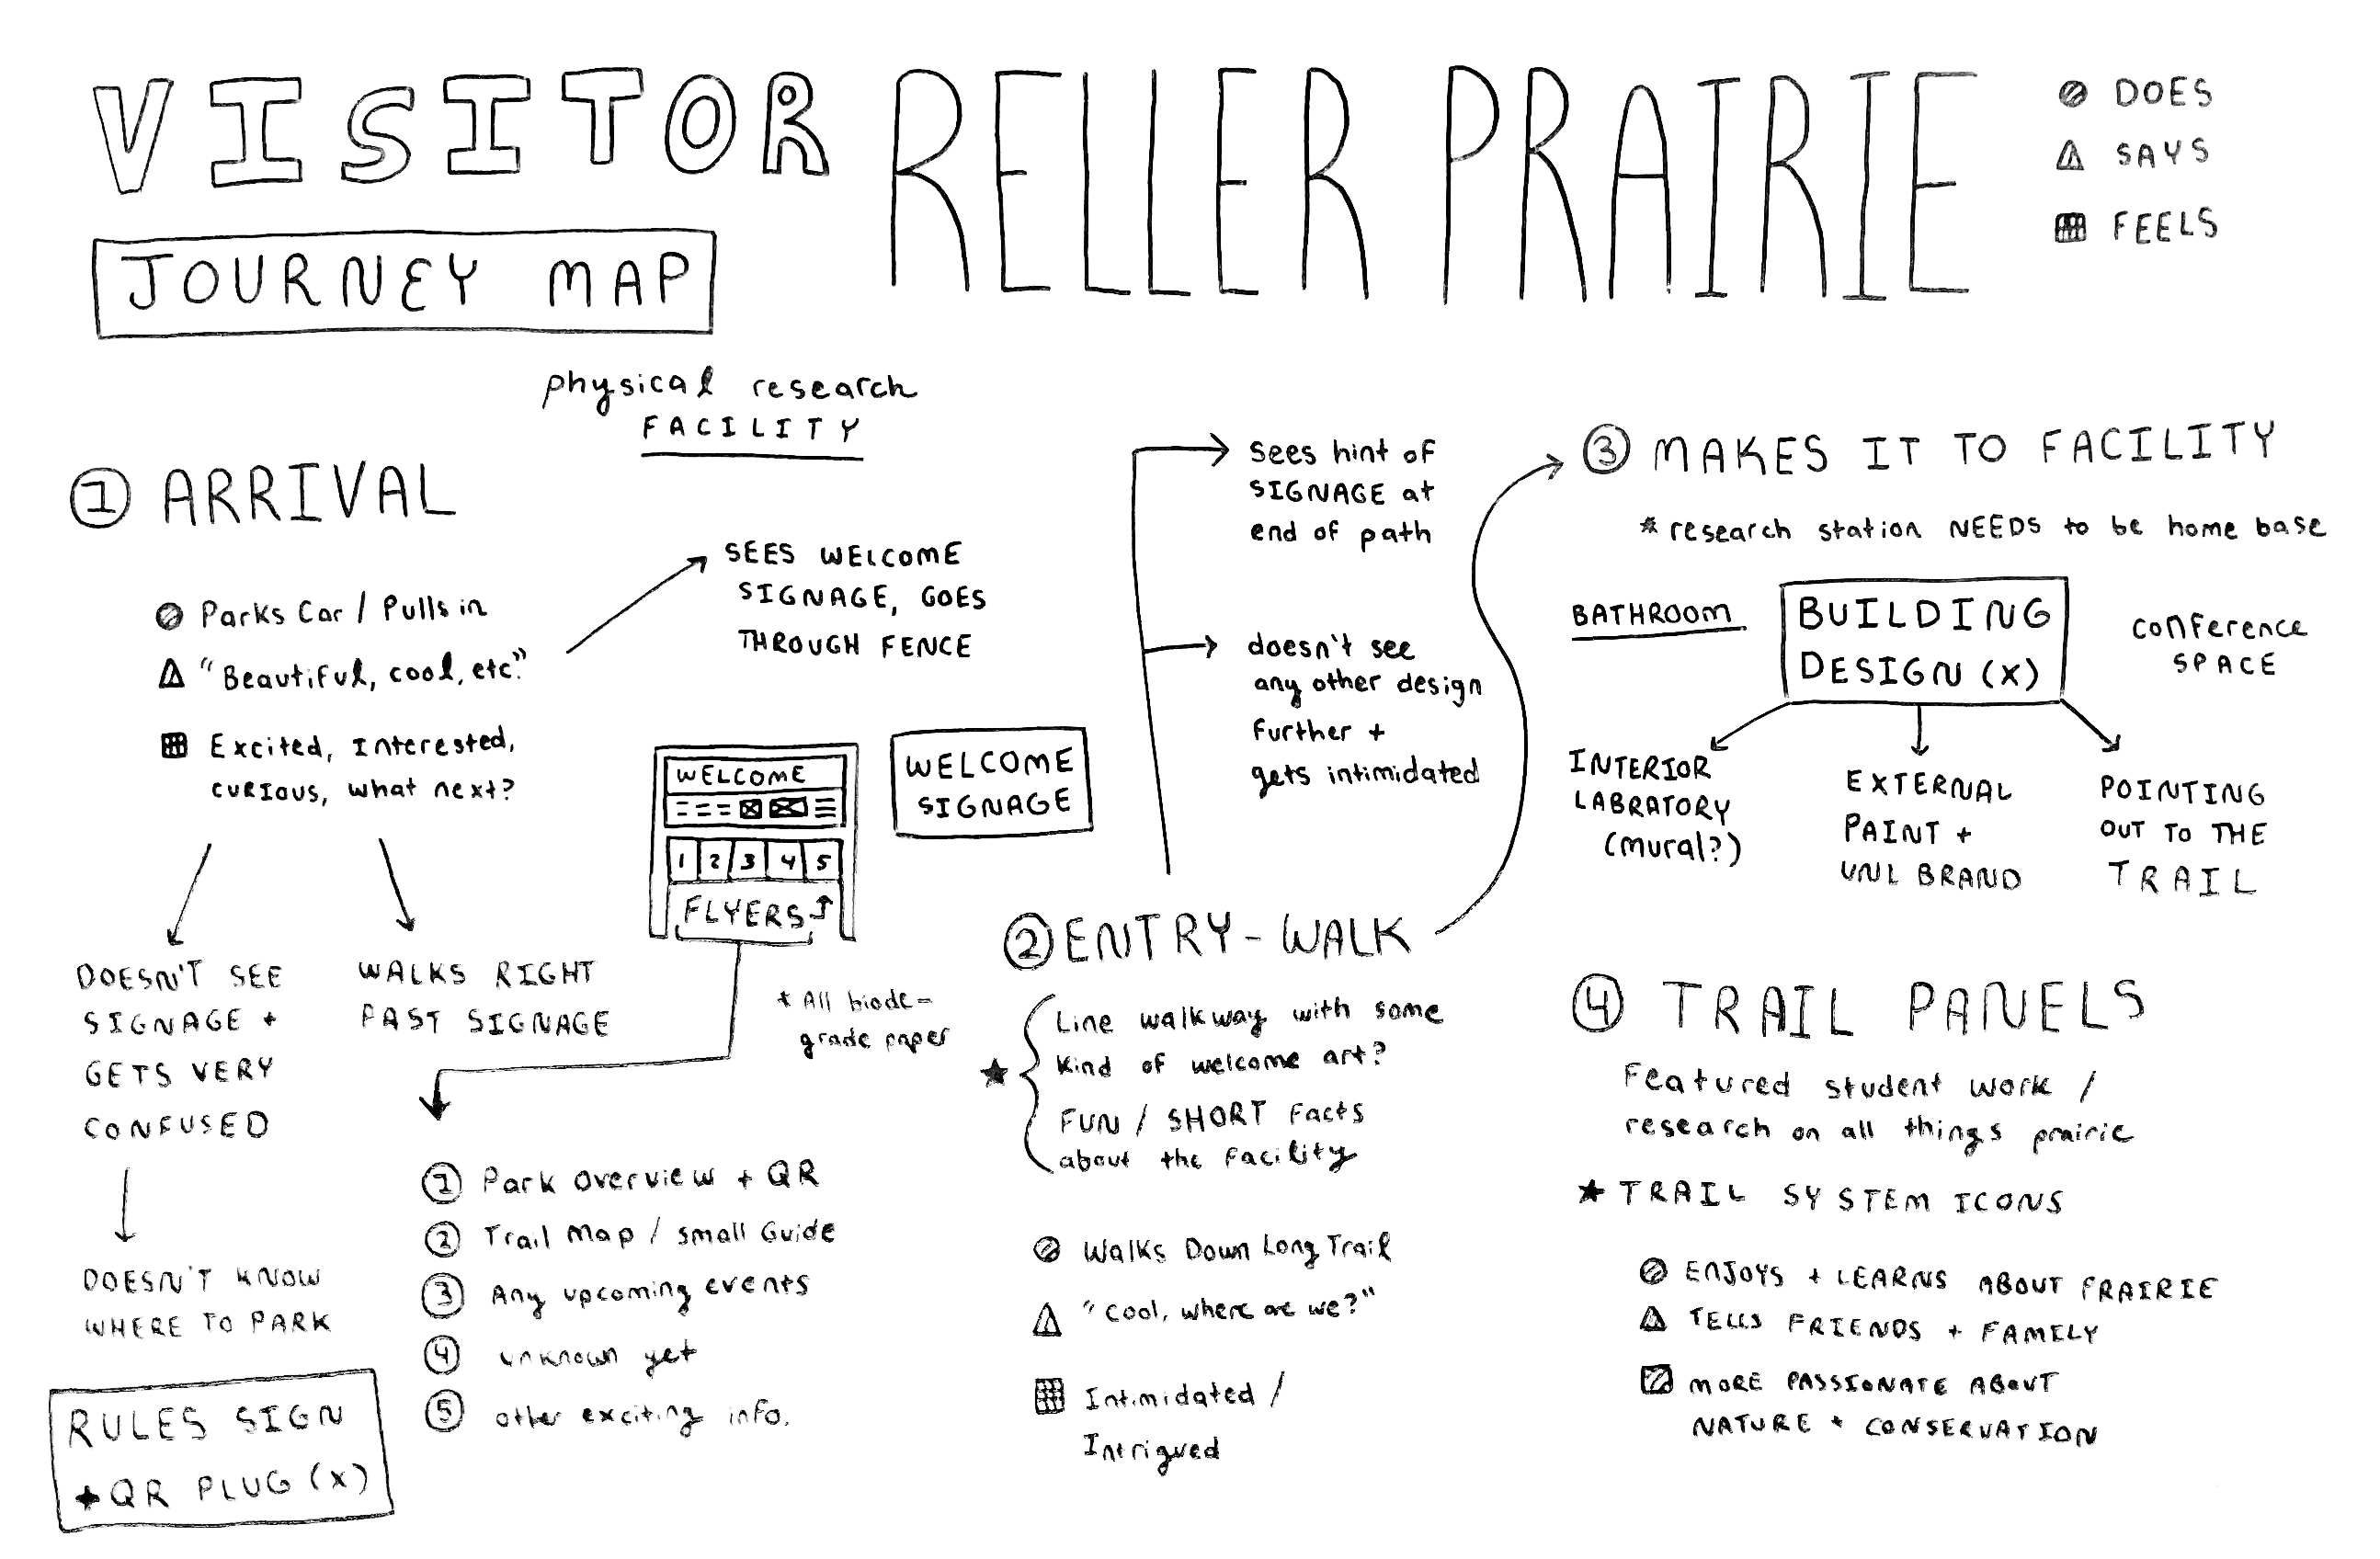 VISITOR
JOURNEY MAP
RELLER PRAIRIE
DOES
SAYS
FEELS
physical research
FACILITY
1 ARRIVAL
Parks Car / Pulls in
"Beautiful, cool, etc."
Excited, Interested,
curious, what next?
SEES WELCOME
SIGNAGE, GOES
THROUGH FENCE
DOESN'T SEE
SIGNAGE +
GETS VERY
CONFUSED
DOESN'T KNOW
WHERE TO PARK
RULES SIGN
+QR PLUG (X)
WALKS RIGHT
PAST SIGNAGE
WELCOME
1 2 3 4 5
FLYERS
WELCOME
SIGNAGE
* All biode-
grade paper
1 Park Overview + QR
2 Trail Map / Small Guide
3 Any upcoming events
4 unknown yet
5 other exciting info.
sees hint of
SIGNAGE at
end of path
doesn't see
any other design
further +
gets intimidated
2 ENTRY-WALK
Line walkway with some
kind of welcome art?
FUN / SHORT Facts
about the Facility
Walks Down Long Trail
"Cool, where are we?"
Intimidated /
Intrigued
3 MAKES IT TO FACILITY
* research station NEEDS to be home base
BATHROOM
BUILDING
DESIGN (X)
conference
SPACE
INTERIOR
LABRATORY
(mural?)
EXTERNAL
PAINT +
UNL BRAND
POINTING
OUT TO THE
TRAIL
4 TRAIL PANELS
Featured student work /
research on all things prairie
★ TRAIL SYSTEM ICONS
ENJOYS + LEARNS ABOUT PRAIRIE
TELLS FRIENDS + FAMILY
MORE PASSIONATE ABOUT
NATURE + CONSERVATION